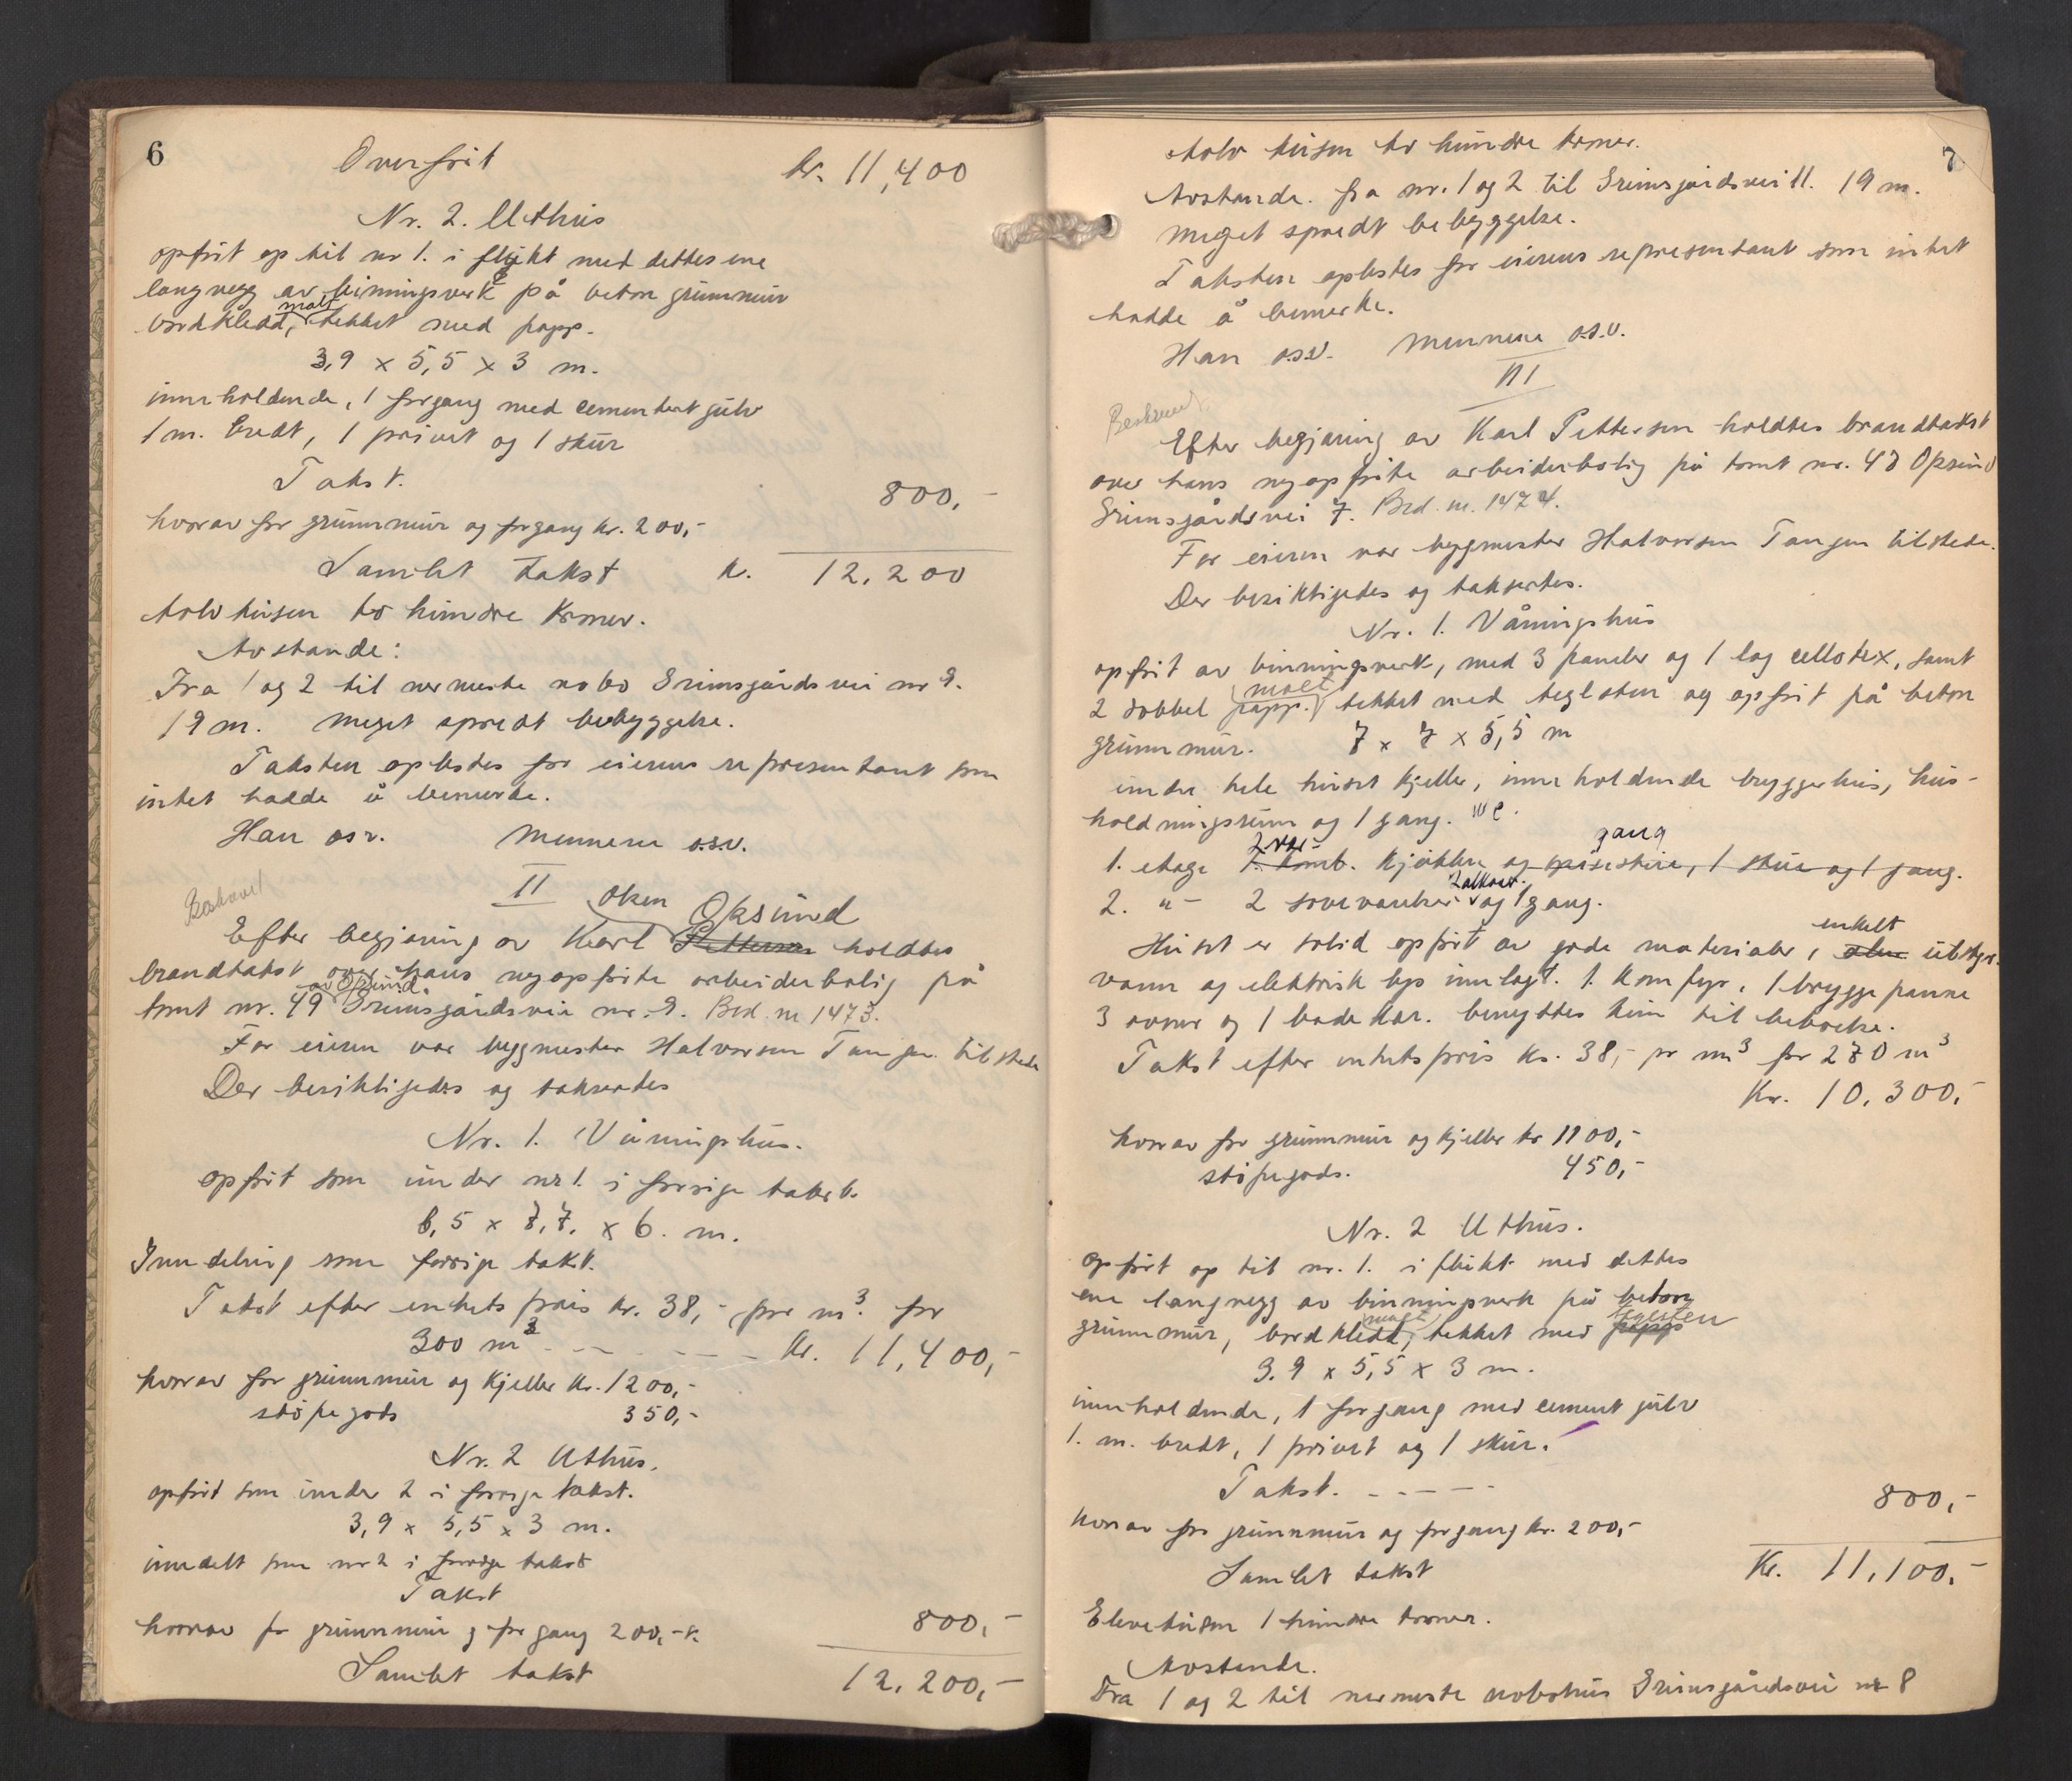 6
Overført kr. 11,400
Nr. 2. Uthus
opført op til nr 1. i flukt med dettes ene
langvegg av binningsverk på beton grunnmur
bordkledd, malt tekket med papp.
3,9 x 5,5 x 3 m.
innholdende, 1 forgang med cementert gulv
1 m. bredt, 1 privet og 1 skur
Takst. 800,-
hvorav for grunnmur og forgang kr. 200,-
Samlet takst kr. 12,200
tolv tusen to hundre kroner.
Avstande:
Fra 1 og 2 til nermeste nabo Grimsgårdsvei nr 9.
19 m. meget spredt bebyggelse.
Taksten oplestes for eierens representant som
intet hadde å bemerke.
Han osv. Mennene o.s.v.
II
Beskrevet
Efter begjæring av Karl Petterson Oksund holdtes
brandtakst over hans nyopførte arbeiderbolig på
tomt nr. 49 av Opsund Grimsgårdsvei nr. 9. Brd. nr 1473.
For eieren var byggmester Halvorsen Tangen tilstede
Der besiktigedes og taksertes
Nr. 1. Våningshus.
opført som under nr 1. i forrige takst.
6,5 x 7,7. x 6. m.
Inndeling som forrige takst.
Takst efter enhetspris kr. 38,- pr m³. for
300 m³ - - - - - kr. 11,400,-
hvorav for grunnmur og kjeller kr. 1200,-
støpegods 350,-
Nr. 2 Uthus.
opført som under 2 i forrige takst.
3,9 x 5,5 x 3 m.
inndelt som nr 2 i forrige takst
Takst 800,-
hvorav for grunnmur og forgang 200,- kr.
Samlet takst 12,200,-
7
tolv tusen to hundre kroner.
Avstande. fra nr. 1 og 2 til Grimsgårdsvei 11. 19 m.
meget spredt bebyggelse.
Taksten oplestes for eierens representant som intet
hadde å bemerke.
Han o.s.v. Mennene o.s.v.
III
Beskrevet
Efter begjæring av Karl Petterson holdtes brandtakst
over hans nyopførte arbeiderbolig på tomt nr. 48 Opsund
Grimsgårdsvei 7. Brd. nr. 1474.
For eieren var byggmester Halvorsen Tangen tilstede.
Der besiktigedes og taksertes.
Nr. 1. Våningshus
opført av binningsverk, med 3 paneler og 1 lag cellotex, samt
2 dobbel papp. malt tekket med teglsten og opført på beton
grunnmur. 7 x 7 x 5,5 m
under hele huset kjeller, innholdende bryggerhus, hus-
holdningsrum og 1 gang. WC.
1. etage 1. komb. 2 vær. kjøkken og spisestue, 1 stue og 1 gang. gang
2. "- 2 soveværelser 2 alkover. og 1 gang.
Huset er solid opført av gode materialer, enkelt utstyr.
vann og elektrisk lys innlagt. 1. komfyr, 1 bryggepanne
3 ovner og 1 badekar. benyttes kun til beboelse.
Takst efter enhetspris kr. 38,- pr m³ for 270 m³
Kr. 10.300,-
hvorav for grunnmur og kjeller kr 1100,-
støpegods. 450,-
Nr. 2 Uthus.
opført op til nr. 1. i flukt med dettes
ene langvegg av binningsverk på beton
grunnmur, bordkledd, malt tekket med papp teglsten
3.9 x 5,5 x 3 m.
innholdende, 1 forgang med cement gulv
1. m. bredt, 1 privet og 1 skur.
Takst. - - - - - 800,-
hvorav for grunnmur og forgang kr. 200,-
Samlet takst Kr. 11,100,-
Elevetusen 1 hundre kroner.
Avstande.
Fra 1 og 2 til nermeste nabohus Grimsgårdsvei nr 8